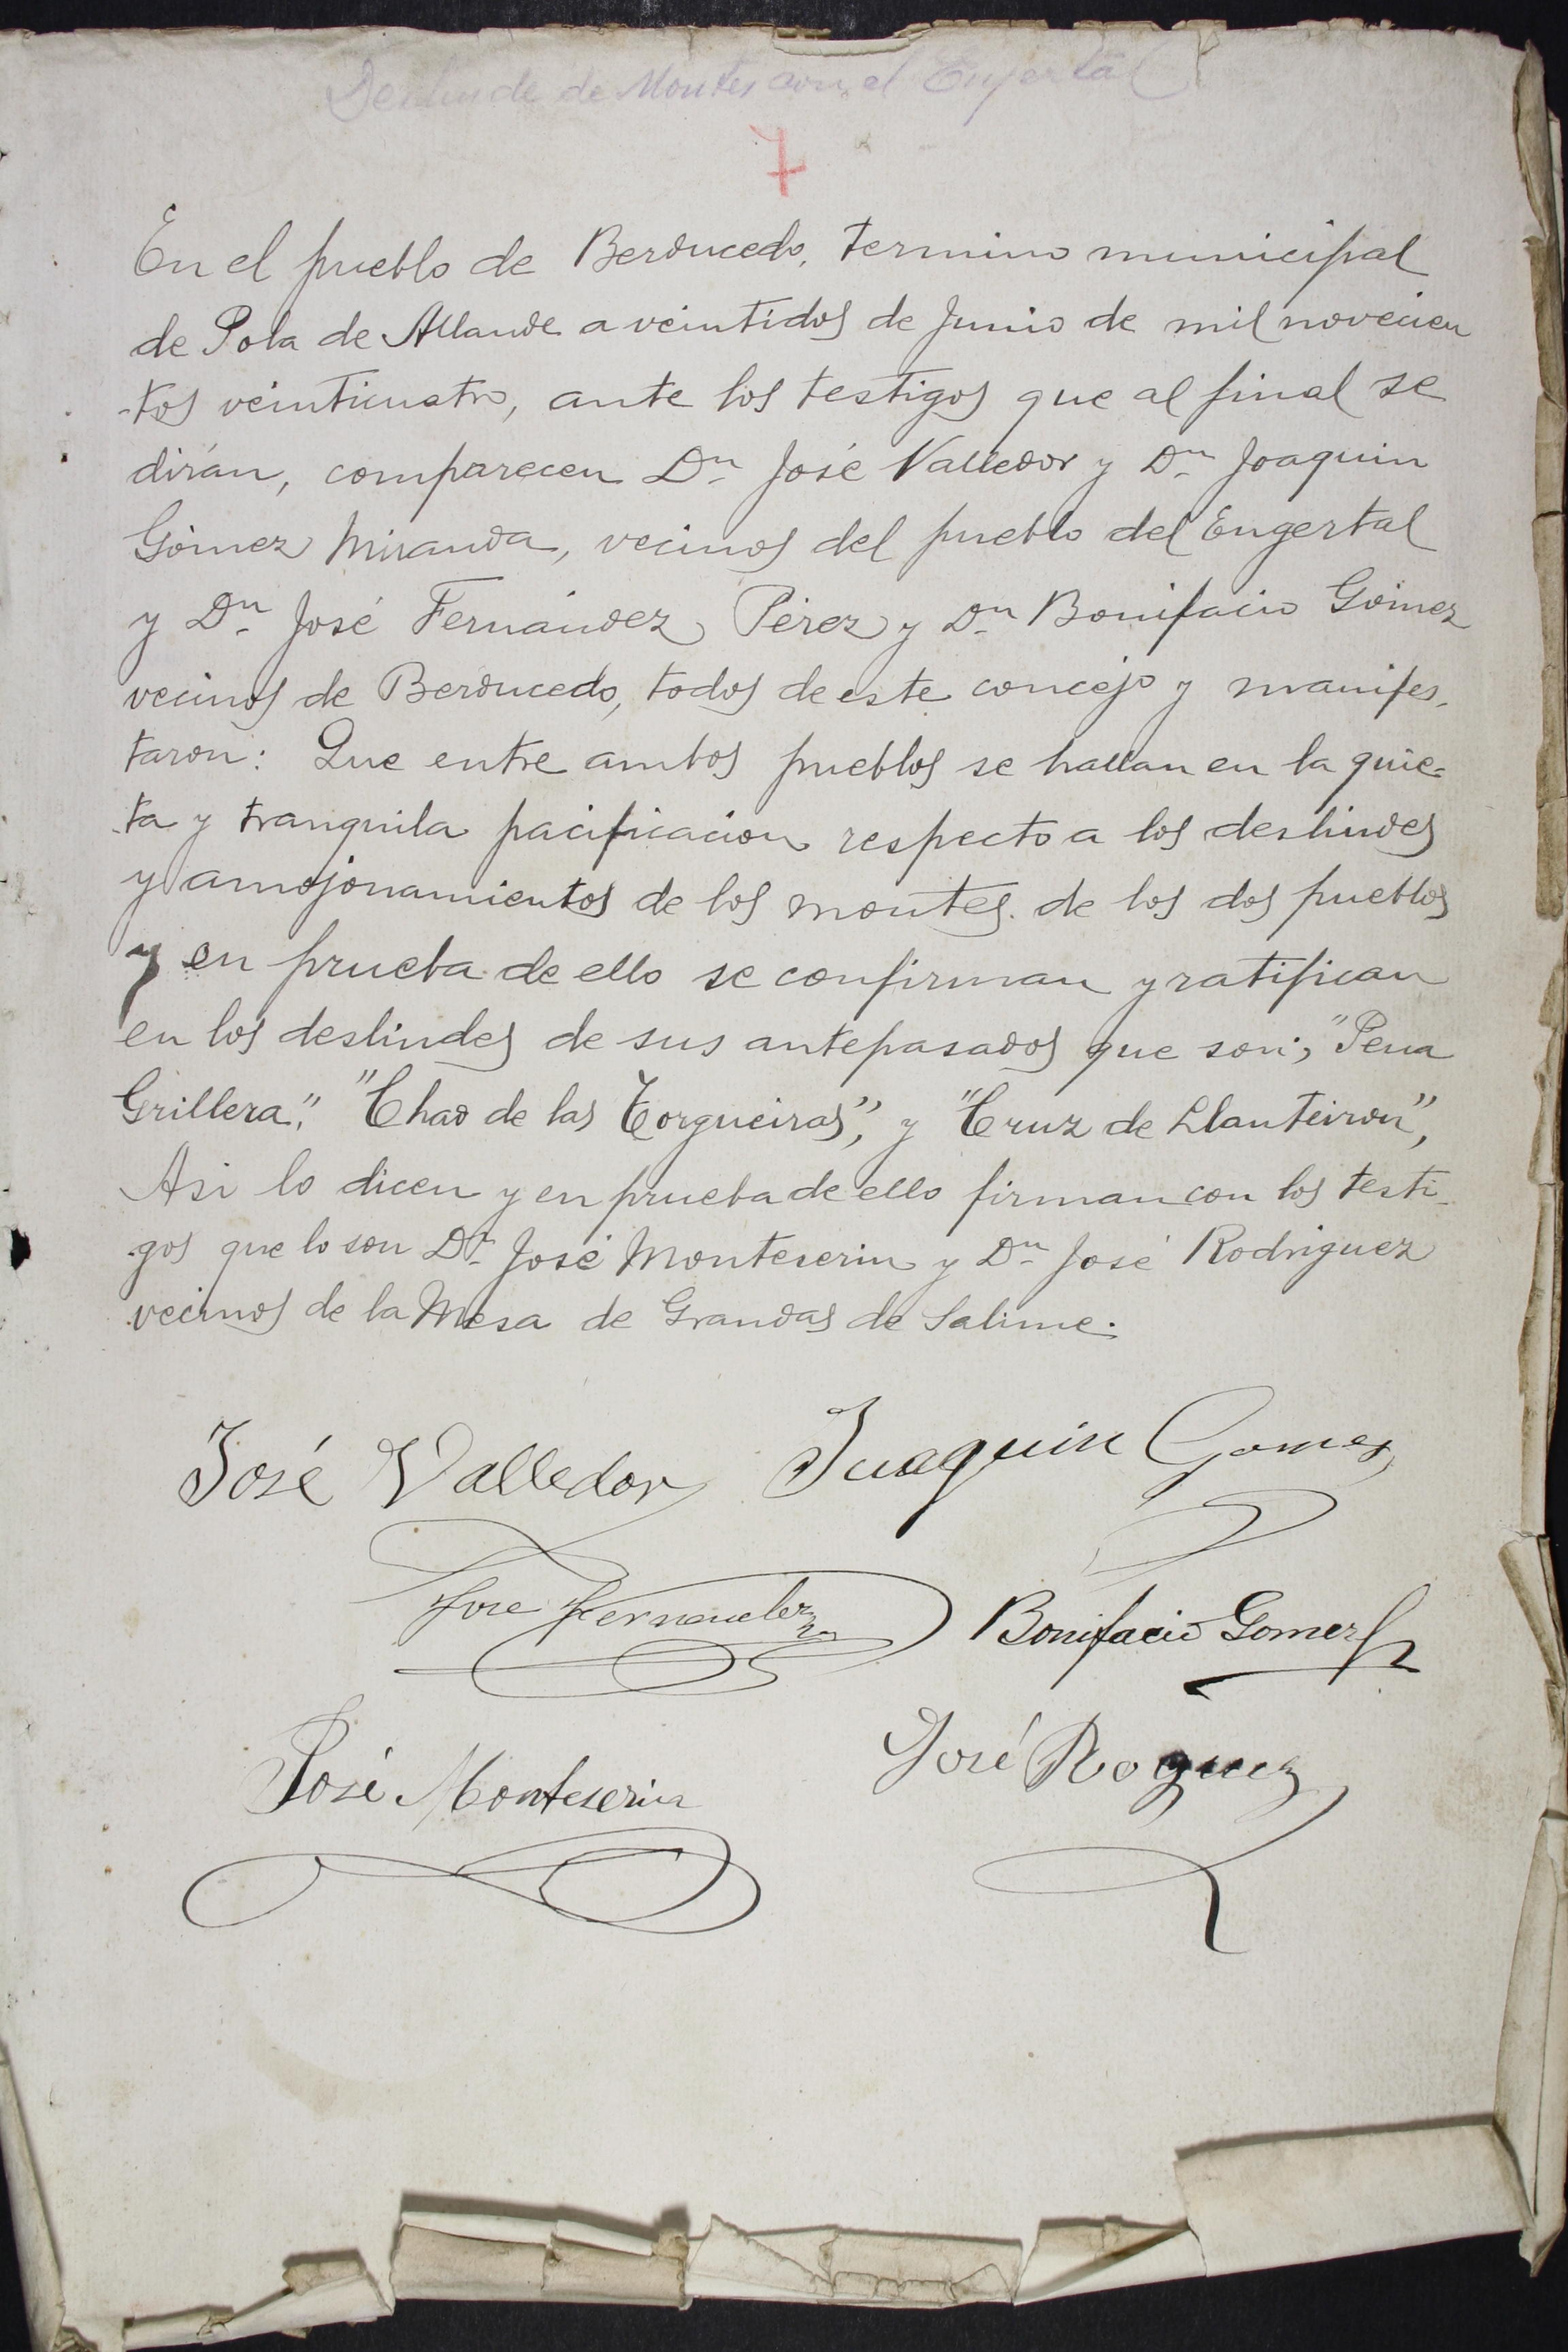 Deslinde de Montes con el Enjertal
7
En el pueblo de Berducedo, termino municipal
de Pola de Allande a veintidos de Junio de mil novecien
-tos veinticuatro, ante los testigos que al final se
dirán, comparecen Dn José Valledor y Dn Joaquin
Gómez Miranda, vecinos del pueblo del Engertal
y Dn José Fernández Pérez y Dn Bonifacio Gómez
vecinos de Berducedo, todos de este concejo y manifes-
taron: Que entre ambos pueblos se hallan en la quie=
-ta y tranquila pacificacion respecto a los deslindes
y amojonamientos de los montes de los dos pueblos
y en prueba de ello se confirman y ratifican
en los deslindes de sus antepasados que son; "Pena
Grillera", "Chao de las Torgueiras", y "Cruz de Llanteiron",
Asi lo dicen y en prueba de ello firman con los testi-
-gos que lo son Dn José Monteserin y Dn José Rodriguez
vecinos de la Mesa de Grandas de Salime.
José Valledor Juaquin Gomez
Jose Fernandez Bonifacio Gomez
José Monteserin José Roguez